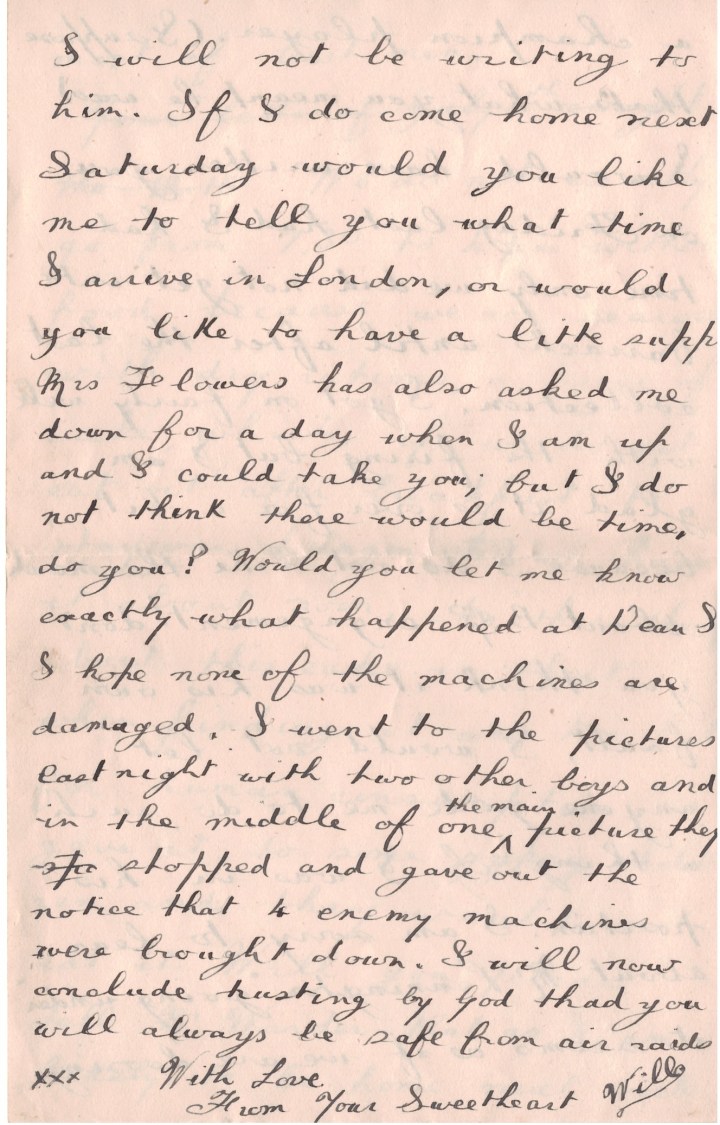 I will not be writing to
him. If I do come home next
Saturday would you like
me to tell you what time
I arrive in London, or would
you like to have a litte supp
Mrs Felowers has also asked me
down for a day when I am up
and I could take you; but I do
not think there would be time,
do you? Would you let me know
exactly what happened at Dean S
I hope none of the machines are
damaged. I went to the pictures
last night with two other boys and
in the middle of one the main picture they
stopped and gave out the
notice that 4 enemy machines
were brought down. I will now
conclude trusting by God thad you
will always be safe from air raids
xxx With Love
From Your Sweetheart Will